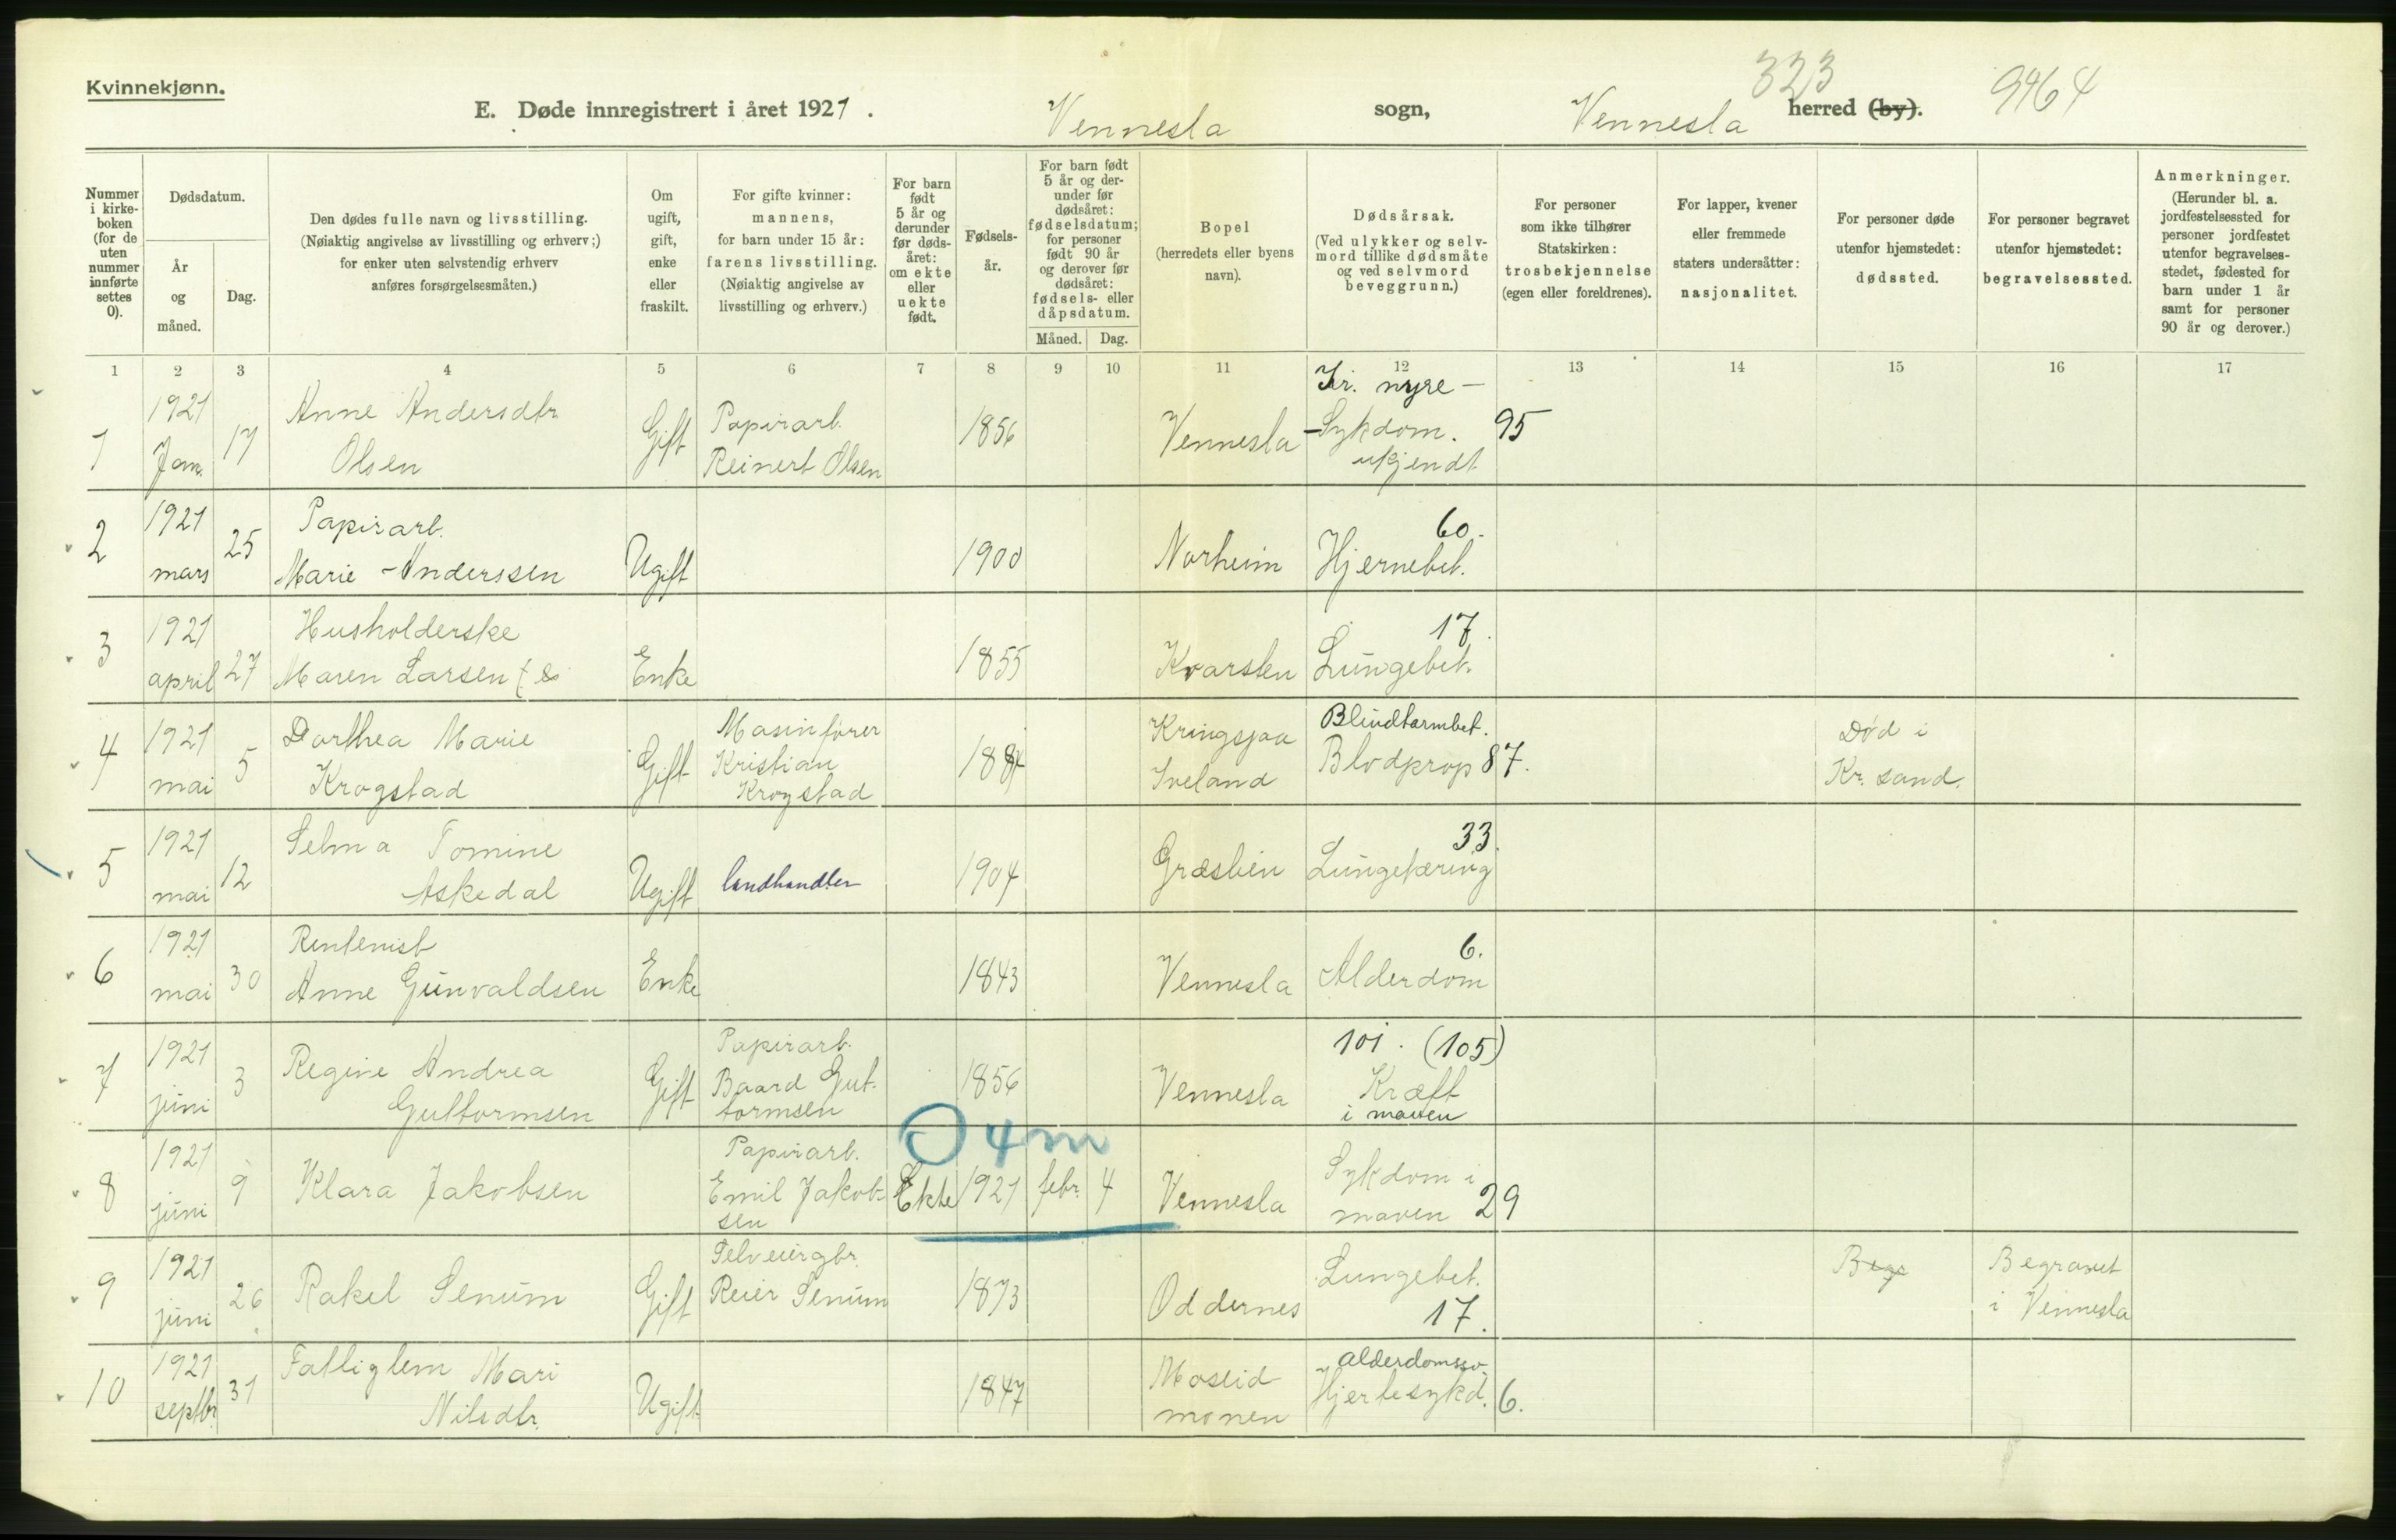 Kvinnekjønn.
E. Døde innregistrert i året 1921.
Vennesla sogn, Vennesla herred (by).
323
9464
Nummer i kirke-boken (for de uten nummer innførte settes 0).
Dødsdatum.
År og måned.
Dag.
Den dødes fulle navn og livsstilling.
(Nøiaktig angivelse av livsstilling og erhverv;)
for enker uten selvstendig erhverv
anføres forsørgelsesmåten.)
Om ugift, gift, enke eller fraskilt.
For gifte kvinner: mannens, for barn under 15 år: farens livsstilling. (Nøiaktig angivelse av livsstilling og erhverv.)
For barn født 5 år og derunder før døds-året: om ekte eller uekte født.
Fødsels-år.
For barn født 5 år og der-under før dødsåret: fødselsdatum; for personer født 90 år og derover før dødsåret: fødsels- eller dåpsdatum.
Måned. Dag.
Bopel
(herredets eller byens navn).
Dødsårsak.
(Ved ulykker og selv-mord tillike dødsmåte og ved selvmord beveggrunn.)
For personer som ikke tilhører Statskirken: trosbekjennelse (egen eller foreldrenes).
For lapper, kvener eller fremmede staters undersåtter: nasjonalitet.
For personer døde utenfor hjemstedet: dødssted.
For personer begravet utenfor hjemstedet: begravelsessted.
Anmerkninger.
(Herunder bl. a. jordfestelsessted for personer jordfestet utenfor begravelses-stedet, fødested for barn under 1 år samt for personer 90 år og derover.)
1 2 3 4 5 6 7 8 9 10 11 12 13 14 15 16 17
1 1921 Jan. 17 Anne Andersdtr Olsen Gift Papirarb. Reinert Olsen 1856 Vennesla Kr. nyre-Sykdom. ukjendt 95
2 1921 mars 25 Papirarb. Marie Anderssen Ugift 1900 Norheim Hjernebet. 60.
3 1921 april 27 Husholderske Maren Larsen Enke 1855 Kvarsten Lungebet. 17.
4 1921 mai 5 Dorthea Marie Krogstad Gift Masinfører Kristian Krogstad 1884 Kringsjaa Iveland Blindtarmbet. Blodprop 87. Død i Kr. sand.
5 1921 mai 12 Selma Tomine Askedal Ugift landhandler 1904 Græslien Lungetæring 33.
6 1921 mai 30 Rentenist Anne Gunvaldsen Enke 1843 Vennesla Alderdom 6.
7 1921 juni 3 Regine Andrea Guttormsen Gift Papirarb. Baard Gut-tormsen 1856 Vennesla 101. (105) Kræft i maven
8 1921 juni 9 Klara Jakobsen Papirarb. Emil Jakob-sen Ekte 1921 febr. 4 Vennesla Sykdom i maven 29
0 4 m
9 1921 juni 26 Rakel Senum Gift Selveiergbr. Reier Senum 1873 Oddernes Lungebet. 17. Begr Begravet i Vennesla
10 1921 septbr. 31 Fattiglem Mari Nilsdtr. Ugift 1847 Moseid monen Hjertesykd. 6.